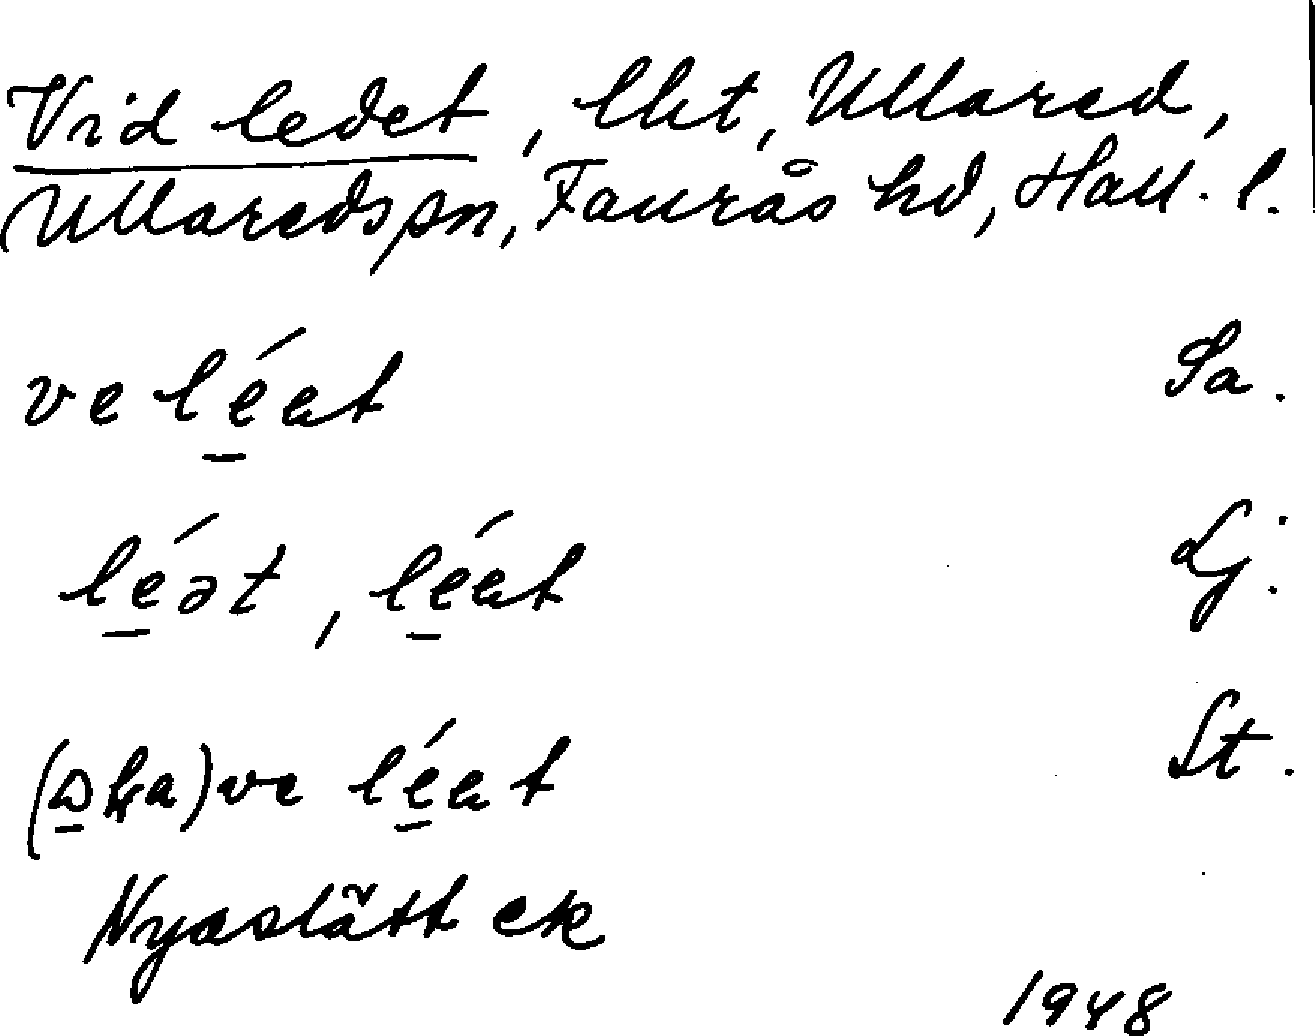 Vid ledet, lht, Ullared,
Ullareds sn, Faurås hd, Hall. l.
ve lé̱ət Sa.
lé̱ət, lé̱ət Lj.
ve lé̱ət St.
Nyaslätt
1948